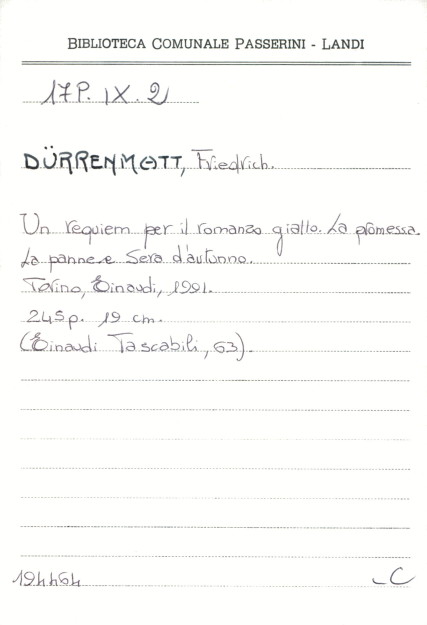 BIBLIOTECA COMUNALE PASSERINI - LANDI
17P. IX. 2
DÜRRENMATT, Friedrich.
Un requiem per il romanzo giallo. La promessa.
La panne e Sera d'autunno.
Torino, Einaudi, 1991.
245p. 19 cm.
(Einaudi Tascabili, 63).
194464
-C